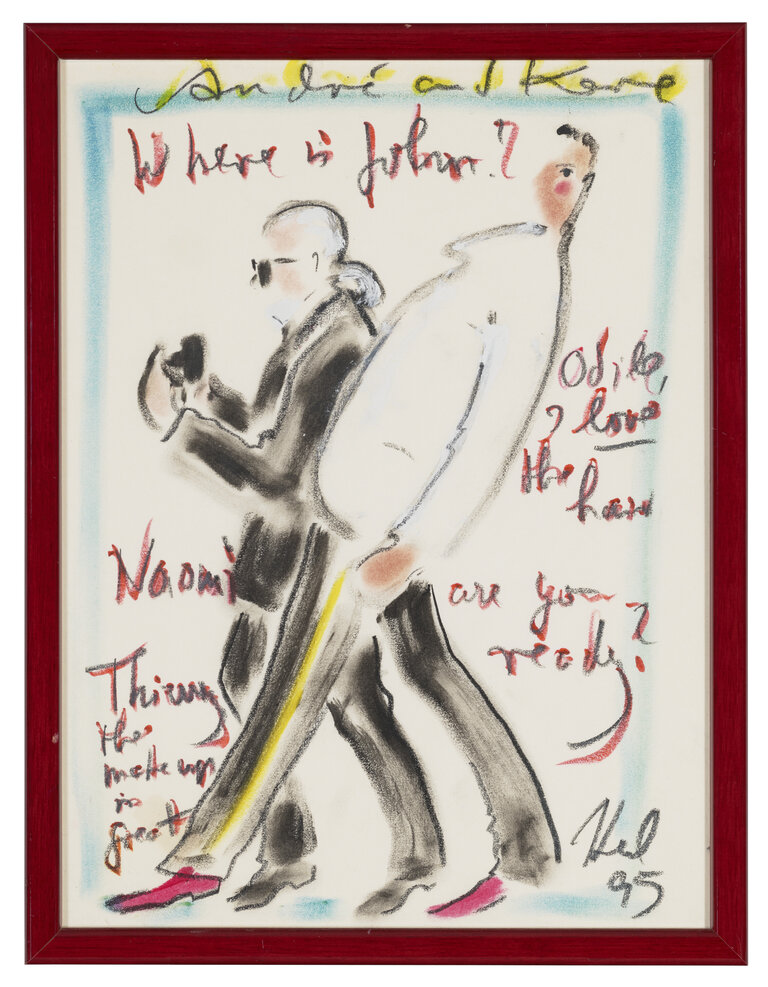 André and Karl
Where is John?
Odile,
I love
the hair
Naomi
are you
ready?
Thierry
the
make up
is
great
Karl
95